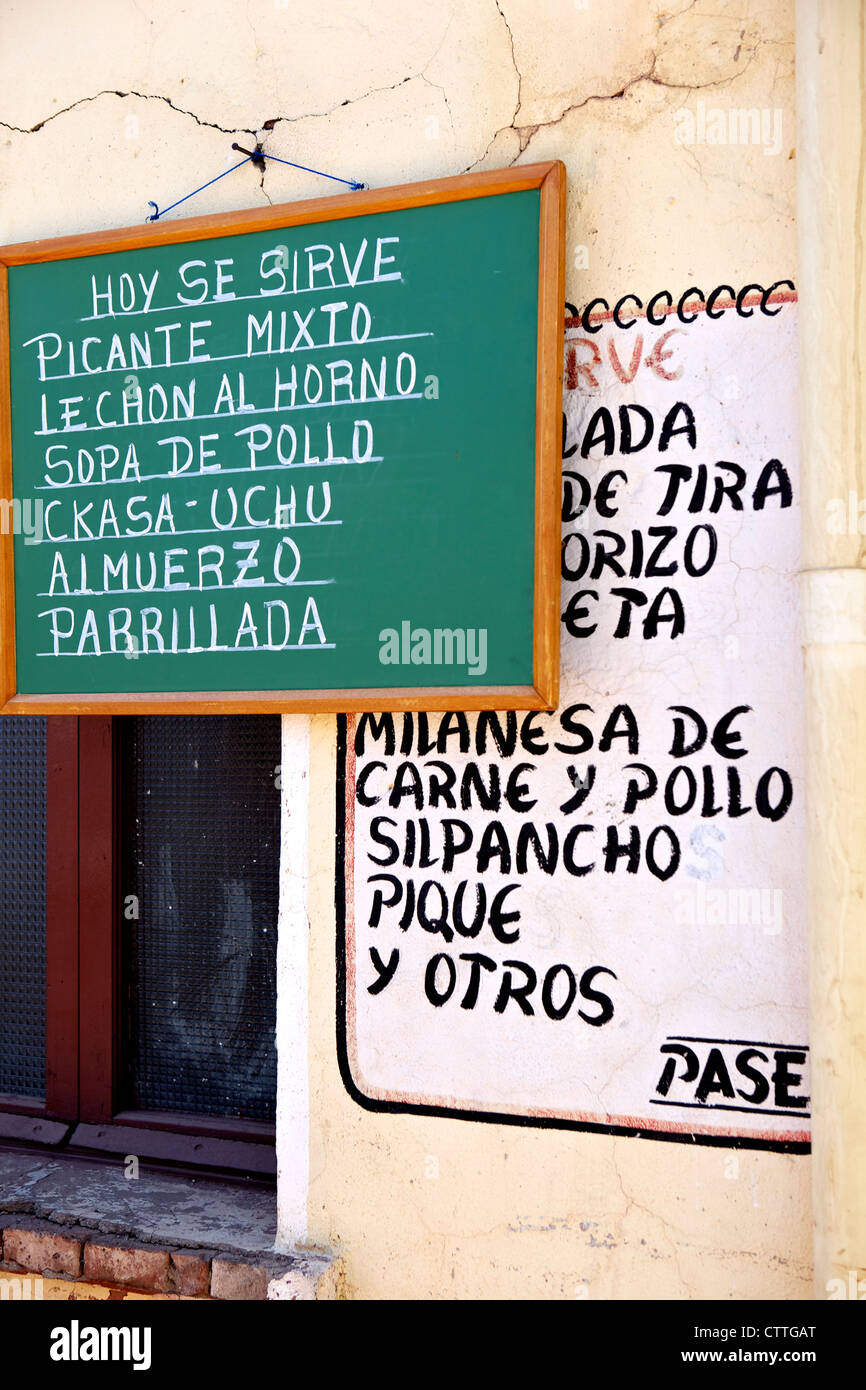 HOY SE SIRVE
PICANTE MIXTO
LECHON AL HORNO
SOPA DE POLLO
CKASA-UCHU
ALMUERZO
PARRILLADA
RVE
LADA
DE TIRA
ORIZO
ETA
MILANESA DE
CARNE Y POLLO
SILPANCHOS
PIQUE
Y OTROS
PASE
alamy
Image ID: CTTGAT
www.alamy.com